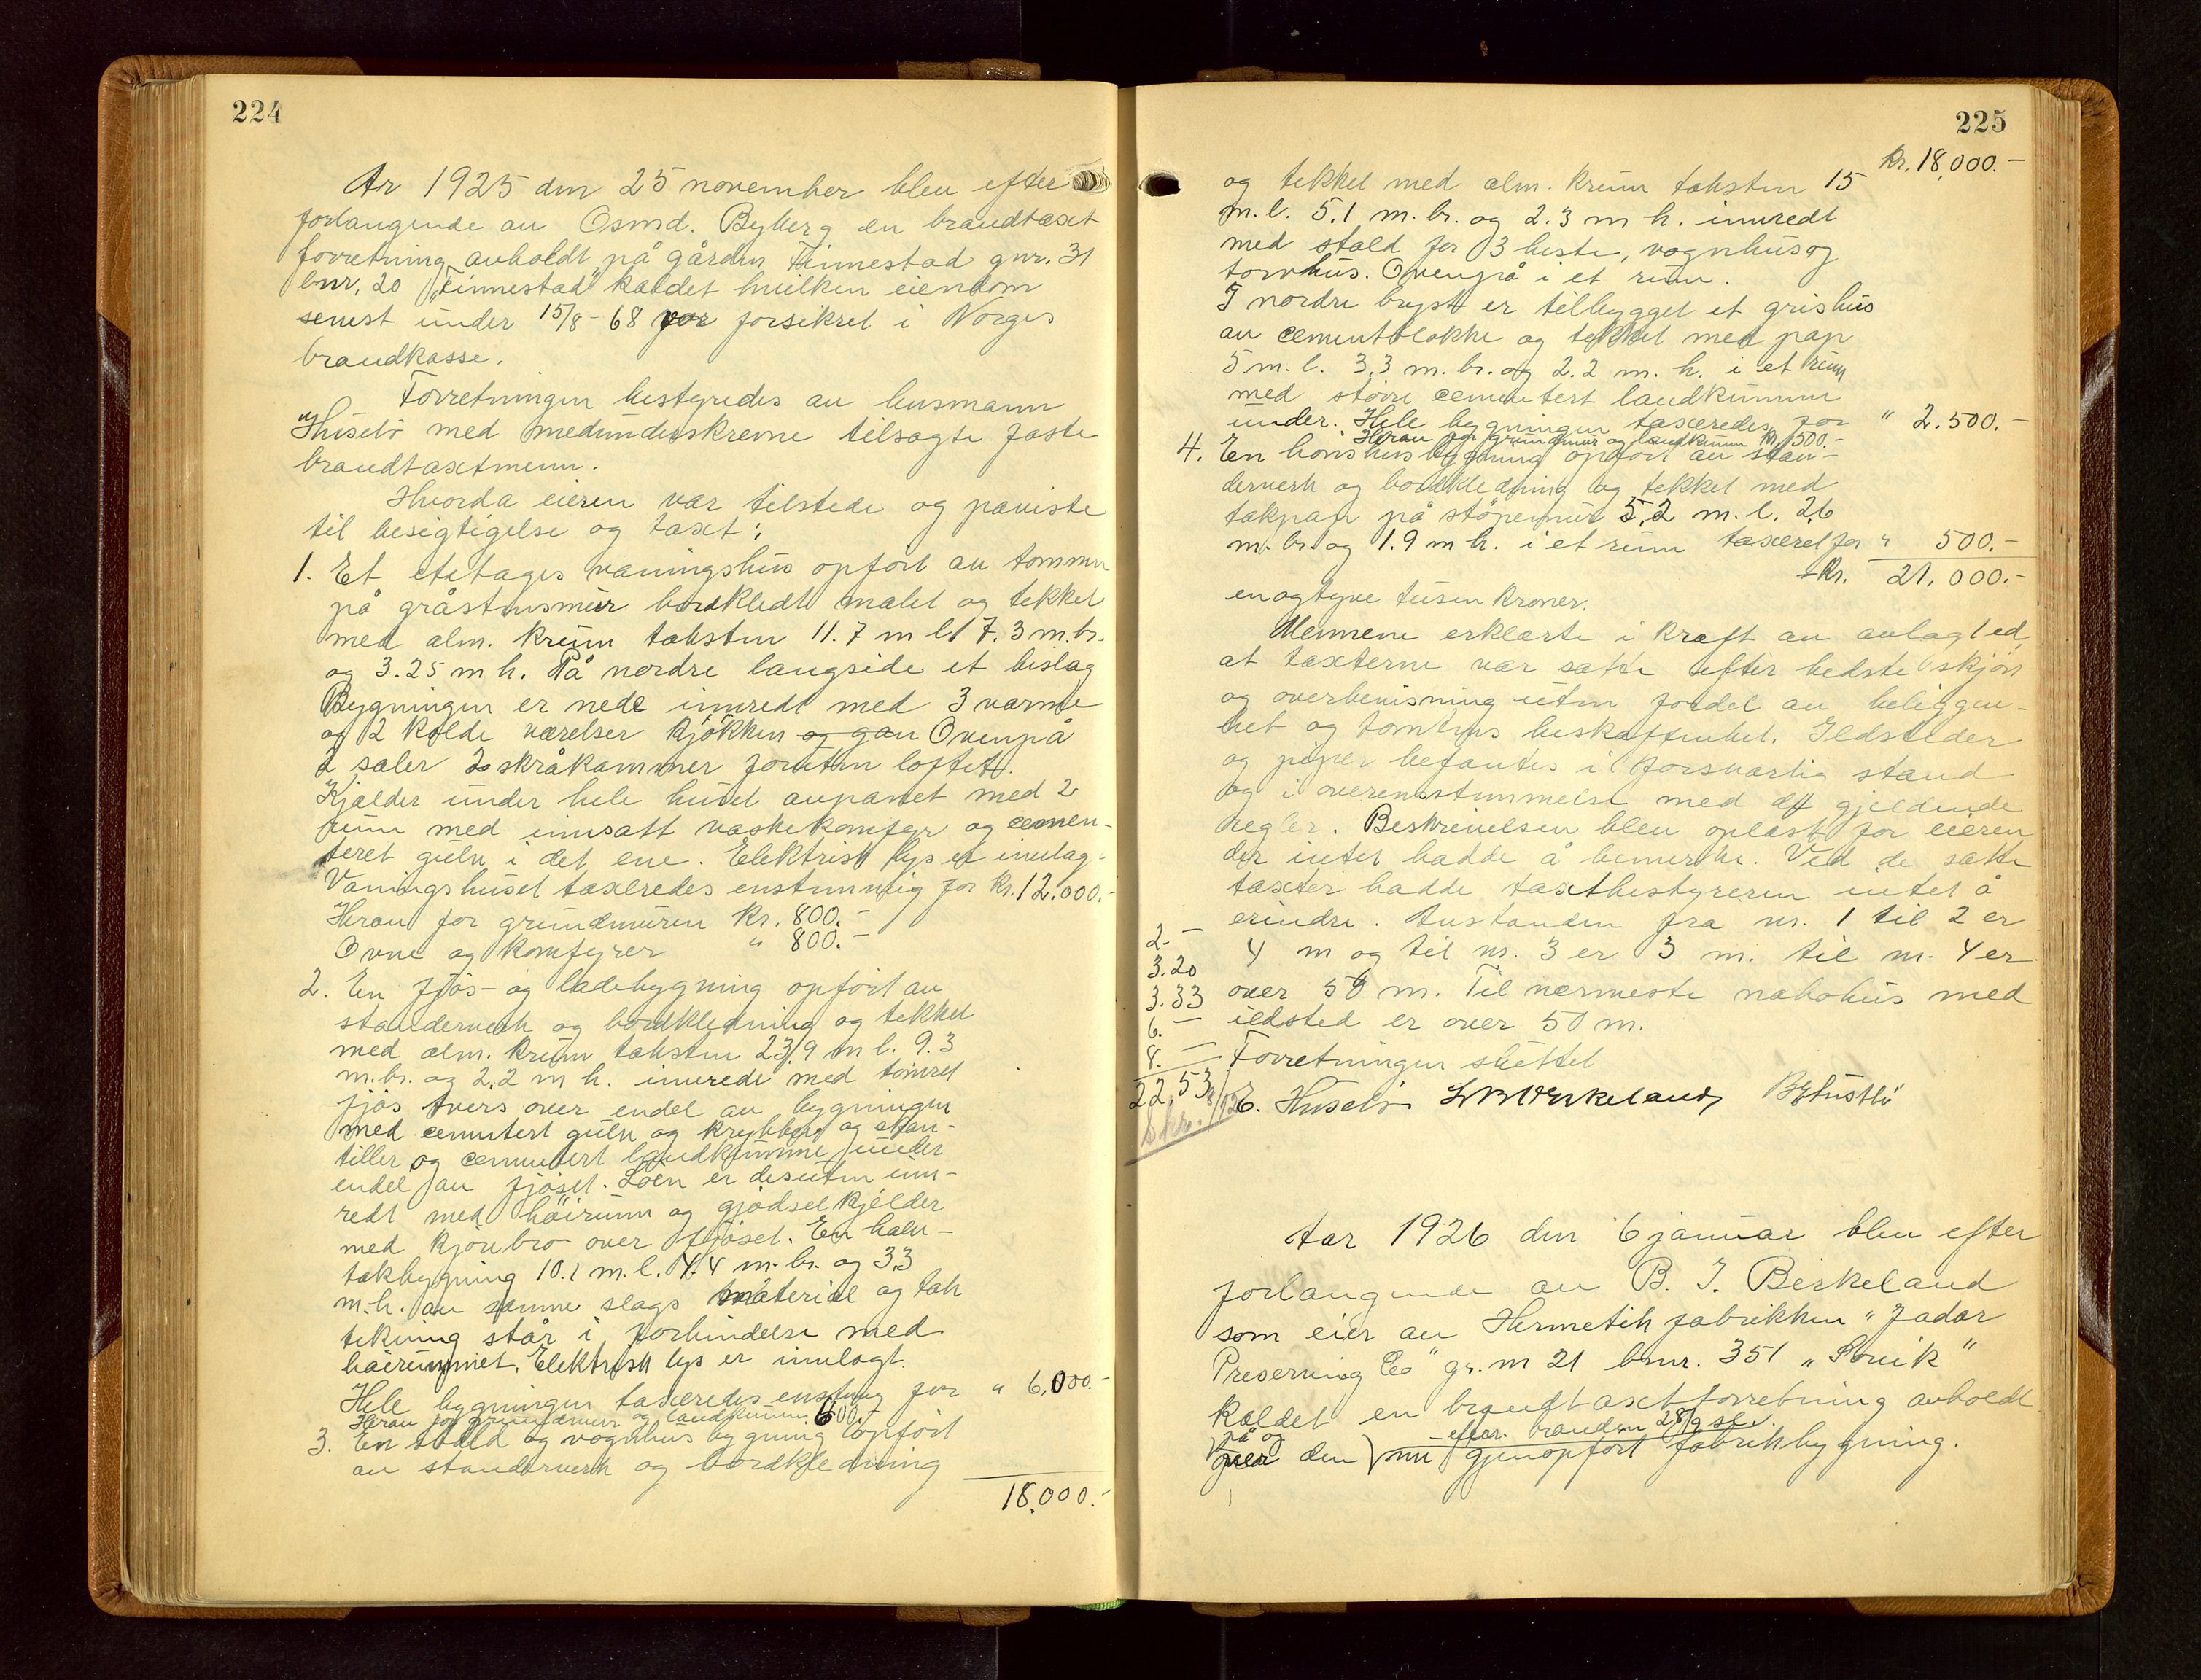 224
Ar 1925 den 25 november blev efter
forlangende av Osmd. Byberg en brandtaxt
forretning avholdt på gården Finnestad gnr. 31
bnr. 20 "Finnestad" kaldet hvilken eiendom
senest under 15/8-68 var forsikret i Norges
brandkasse.
Forretningen bestyredes av husmann
Husebø med medunderskrevne tilsagte faste
brandtaxtmenn.
Hvorda eieren var tilstede og paviste
til besigtigelse og taxt:
1. Et etetages våningshus opført av tømmer
på gråstensmur bordkledt malet og tekket
med alm. krum taksten 11.7 m l. 7.3 m. br.
og 3.25 m h. På nordre langside et bislag
Bygningen er nede innredt med 3 varme
og 2 kolde værelser kjøkken og gan Ovenpå
2 saler 2 skråkammer foruten loftet.
Kjælder under hele huset avpanet med 2
rum med innsatt vaskekomfyr og cemen-
teret gulv i det ene. Elektrisk lys er innlag.
Våningshuset taxeredes enstemmig for Kr. 12.000.-
Herav for grundmuren Kr. 800.-
Ovne og komfyrer " 800.-
2. En fjøs- og ladebygning opført av
standerverk og bordkledning og tekket
med alm. krum taksten 23.9 m l. 9.3
m. br. og 2.2 m h. innredt med tømret
fjøs tvers over endel av bygningen
med cementert gulv og krybber og skan-
tiller og cementert landkumme under
endel av fjøset. Løen er desuten inn-
redt med høirum og gjødselkjelder
med kjørebro over fjøset. En halv-
takbygning 10.2 m. l. 4.4 m. br. og 3.3
m. h. av samme slags material og tak
tekning står i forbindelse med
høirummet. Elektrisk lys er innlagt.
Hele bygningen taxeredes enstemg for " 6.000.-
Herav for grundmur og landkumm 600.-
3. En stald og vognhusbygning opført
av standerverk og bordkledning
18.000.-
225
Kr. 18,000.-
og tekket med alm. krum taksten 15
m. l. 5.1 m. br. og 2.3 m h. innredt
med stald for 3 heste, vognhus og
torvhus. Ovenpå i et rum.
I nordre bryst er tilbygget et grishus
av cementblokke og tekket med pap
5 m. l. 3.3 m. br. og 2.2 m. h. i et rum
med større cementert landkumme
under. Hele bygningen taxeredes for " 2.500.-
Herav for grundmur og landkumm Kr. 500.-
4. En hønshusbygning opført av stan-
derverk og bordkledning og tekket med
takpap på støpemur 5,2 m. l. 2,6
m. br. og 1.9 m h. i et rum taxeret for " 500.-
Kr. 21,000.-
enogtyve tusen kroner.
Mennene erklærte i kraft av avlagt ed
at taxterne var satte efter bedste skjøn
og overbevisning uten fordel av beliggen-
het og tomtens beskaffenhet. Ildsteder
og piper befantes i forsvarlig stand
og i overensstemmelse med de gjeldende
regler. Beskrivelsen blev oplæst for eieren
der intet hadde å bemerke. Ved de satte
taxter hadde taxtbestyreren intet å
erindre. Avstanden fra nr. 1 til 2 er
4 m og til nr. 3 er 3 m. til nr. 4 er
over 50 m. Til nærmeste nabohus med
ildsted er over 50 m.
Forretningen sluttet
2.-
3.20
3.33
6.-
8.-
22,53
E. Husebø
Aar 1926 den 6 januar blev efter
forlangende av B. I. Birkeland
som eier av Hermetik fabrikken "Jadar
Preserving Co" gr. nr 21 bnr. 351 "Sovik"
kaldet en brandtaxtforretning avholdt
på og efter branden 28/9 sl.
over den nu gjenopført fabrikbygning.